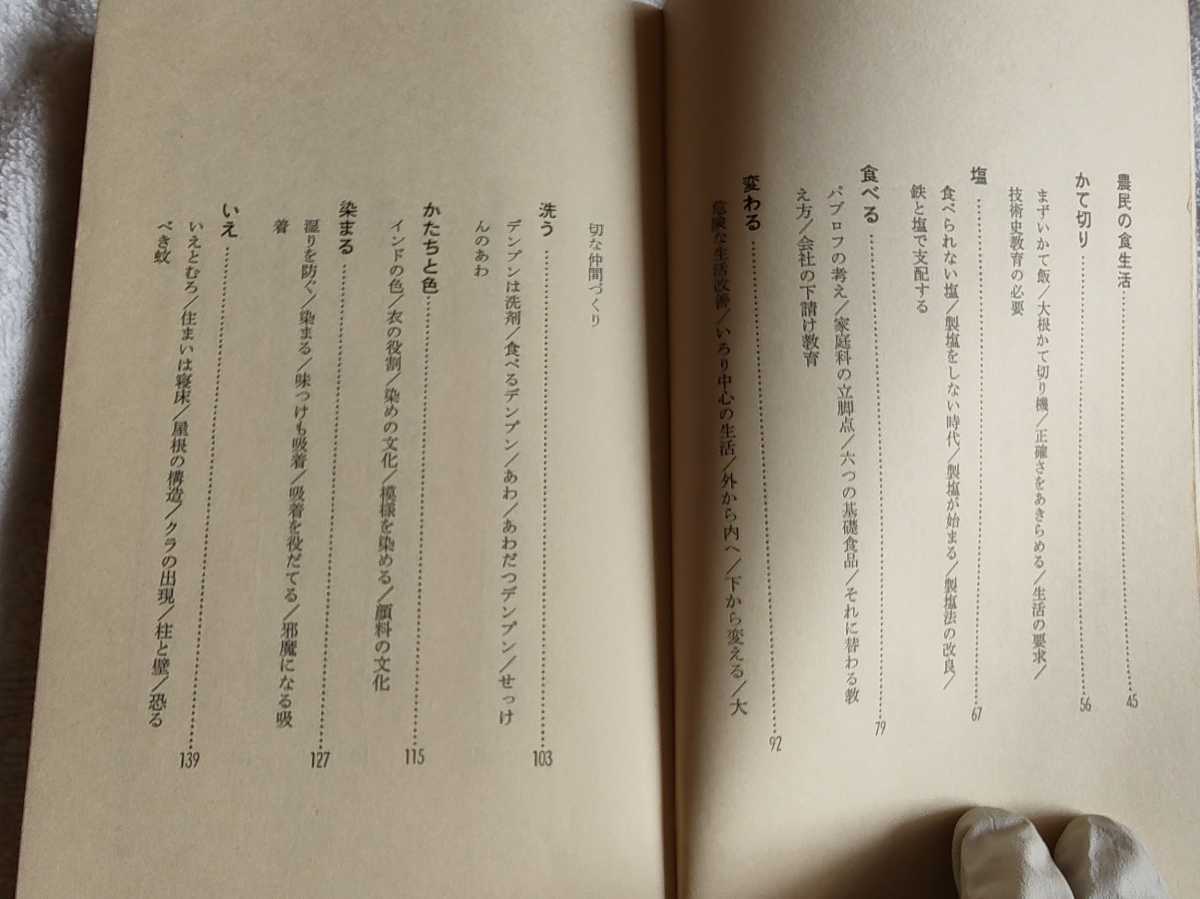 農民の食生活……45
かて切り……56
まずいかて飯／大根かて切り機／正確さをあきらめる／生活の要求／
技術史教育の必要
塩……67
食べられない塩／製塩をしない時代／製塩が始まる／製塩法の改良／
鉄と塩で支配する
食べる……79
パブロフの考え／家庭科の立脚点／六つの基礎食品／それに替わる教
え方／会社の下請け教育
変わる……92
危険な生活改善／いろり中心の生活／外から内へ／下から変える／大
切な仲間づくり
洗う……103
デンプンは洗剤／食べるデンプン／あわ／あわだつデンプン／せっけ
んのあわ
かたちと色……115
インドの色／衣の役割／染めの文化／模様を染める／顔料の文化
染まる……127
湿りを防ぐ／染まる／味つけも吸着／吸着を役だてる／邪魔になる吸
着
いえ……139
いえとむろ／住まいは寝床／屋根の構造／クラの出現／柱と壁／恐る
べき蚊